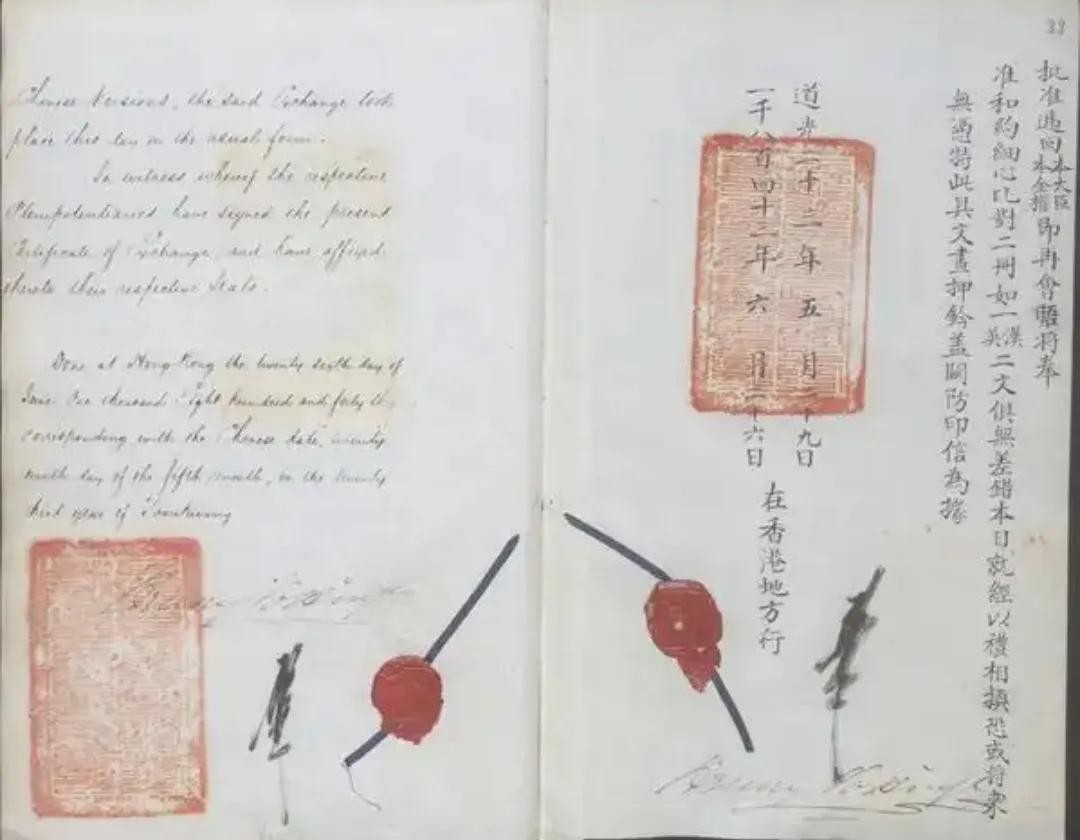 Chinese Versions, the said Exchange took
place this day in the usual form.
In witness whereof the respective
Plenipotentiaries have signed the present
Certificate of Exchange, and have affixed
thereto their respective Seals.
Done at Hong Kong the twenty sixth day of
June One thousand Eight hundred and forty
corresponding with the Chinese date, twenty
ninth day of the fifth month, in the twenty
third year of Taoukwang
Henry Pottinger
33
批准過回本大臣本全權即再會晤將奉
准和約細心比對二冊如一漢英二文俱無差錯本日就經以禮相換恐或將來
無憑特此具文畫押鈐蓋關防印信為據
道光二十三年五月二十九日
一千八百四十三年六月二十六日
在香港地方行
Henry Pottinger